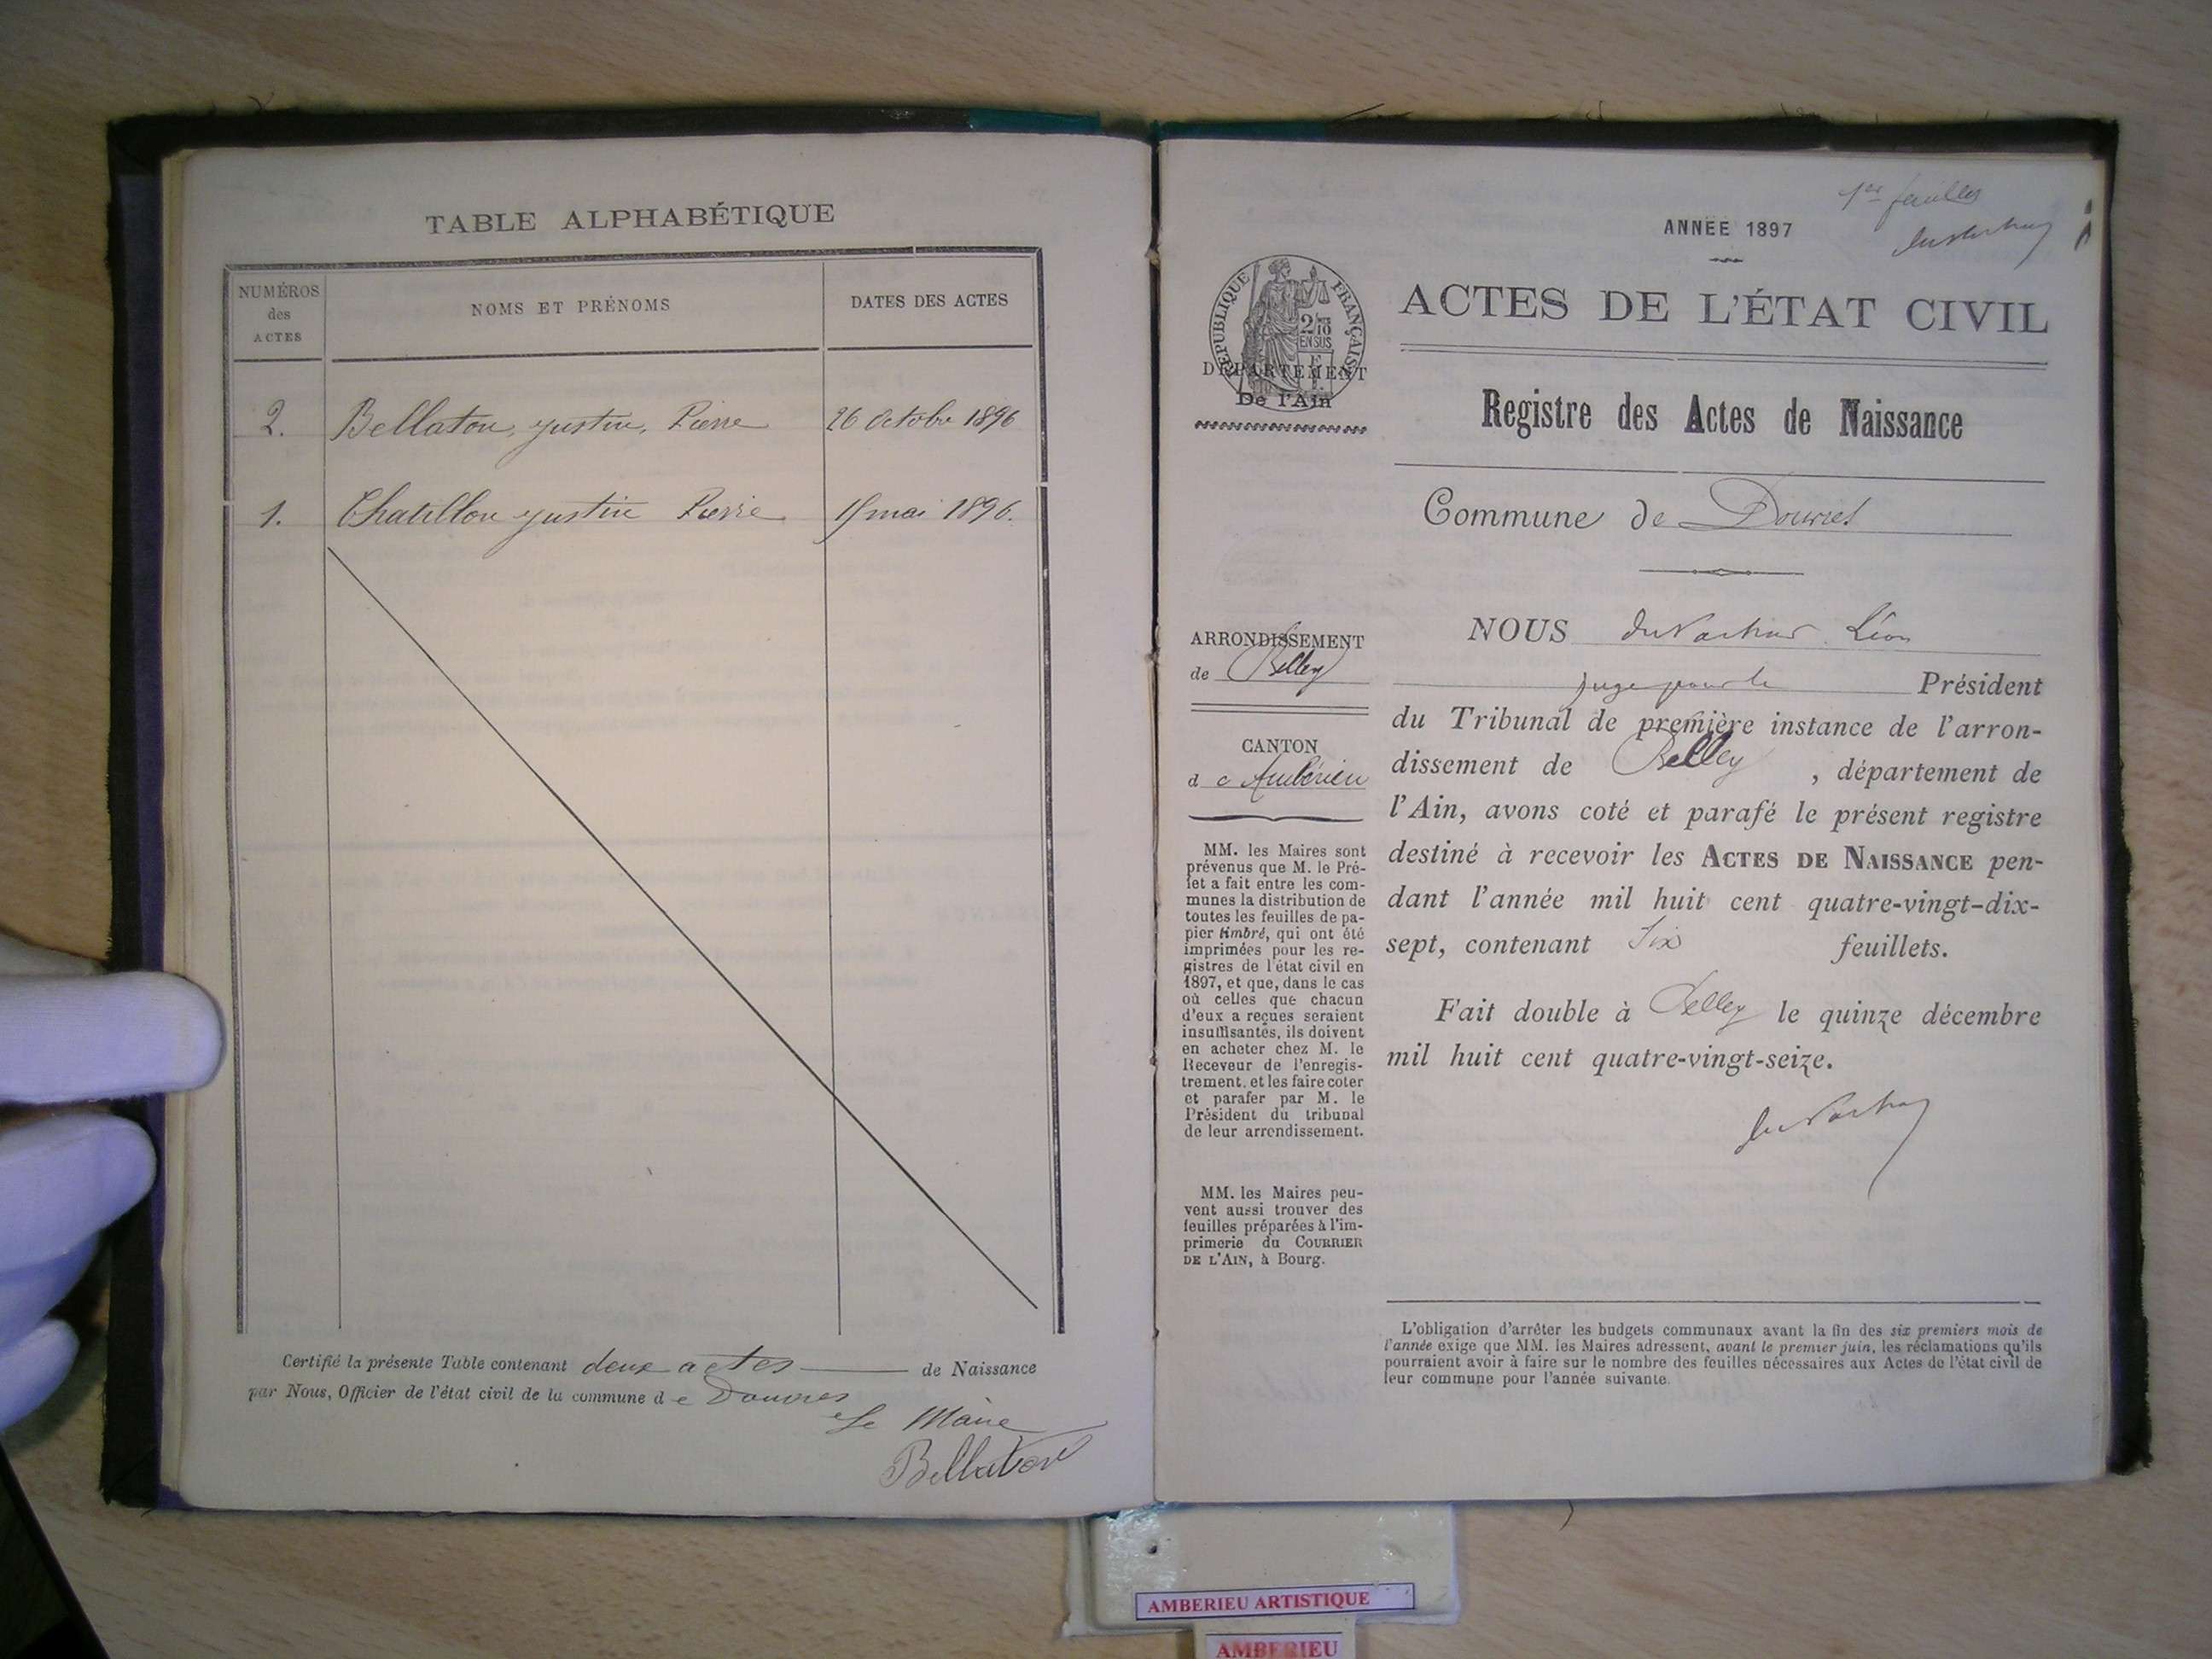 TABLE ALPHABÉTIQUE
NUMÉROS
des
ACTES
NOMS ET PRÉNOMS
DATES DES ACTES
2. Bellaton, Justin, Pierre 26 Octobre 1896
1. Chatillon Justin Pierre mai 1896.
Certifié la présente Table contenant deux actes de Naissance
par Nous, Officier de l'état civil de la commune de Douvres
Le Maire
Bellaton
1er feuillet
ANNÉE 1897
RÉPUBLIQUE FRANÇAISE
2/10
EN SUS
DÉPARTEMENT
De l'Ain
ACTES DE L'ÉTAT CIVIL
Registre des Actes de Naissance
Commune de Douvres
ARRONDISSEMENT
de Belley
CANTON
de Ambérieu
MM. les Maires sont
prévenus que M. le Pré-
fet a fait entre les com-
munes la distribution de
toutes les feuilles de pa-
pier timbré, qui ont été
imprimées pour les re-
gistres de l'état civil en
1897, et que, dans le cas
où celles que chacun
d'eux a reçues seraient
insuffisantes, ils doivent
en acheter chez M. le
Receveur de l'enregis-
trement, et les faire coter
et parafer par M. le
Président du tribunal
de leur arrondissement.
MM. les Maires peu-
vent aussi trouver des
feuilles préparées à l'im-
primerie du COURRIER
DE L'AIN, à Bourg.
NOUS Léon
juge pour le Président
du Tribunal de première instance de l'arron-
dissement de Belley, département de
l'Ain, avons coté et parafé le présent registre
destiné à recevoir les ACTES DE NAISSANCE pen-
dant l'année mil huit cent quatre-vingt-dix-
sept, contenant six feuillets.
Fait double à Belley le quinze décembre
mil huit cent quatre-vingt-seize.
L'obligation d'arrêter les budgets communaux avant la fin des six premiers mois de
l'année exige que MM. les Maires adressent, avant le premier juin, les réclamations qu'ils
pourraient avoir à faire sur le nombre des feuilles nécessaires aux Actes de l'état civil de
leur commune pour l'année suivante.
AMBERIEU ARTISTIQUE
AMBERIEU